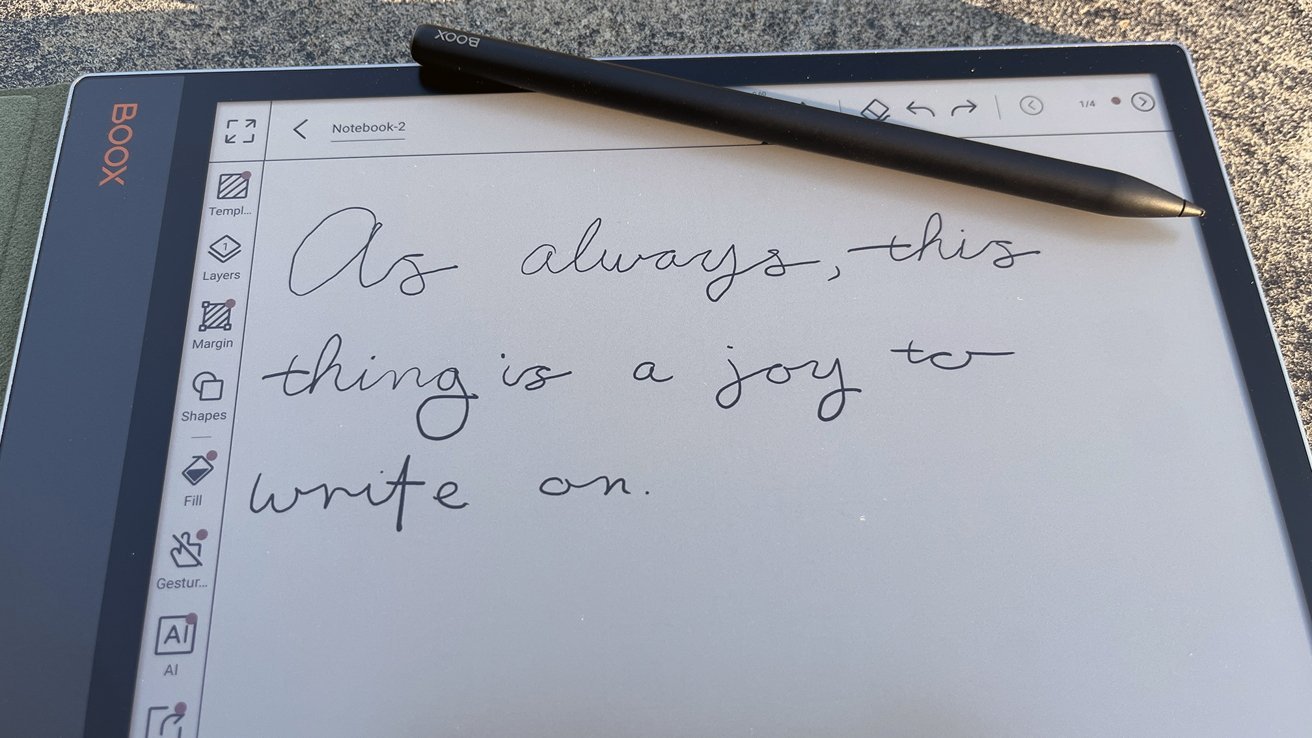 BOOX
BOOX
Notebook-2
1/4
Templ...
1
Layers
Margin
Shapes
Fill
Gestur...
AI
AI
As always, this
thing is a joy to
write on.